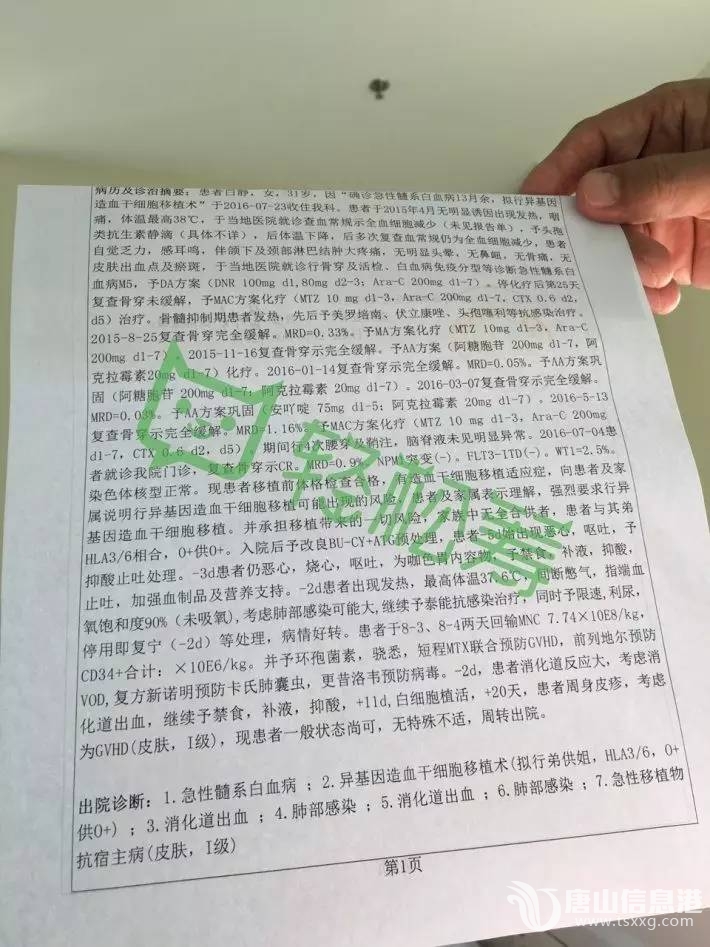 病历及诊治摘要：患者白静，女，31岁，因“确诊急性髓系白血病13月余，拟行异基因
造血干细胞移植术”于2016-07-23收住我科。患者于2015年4月无明显诱因出现发热，咽
痛，体温最高38℃，于当地医院就诊查血常规示全血细胞减少（未见报告单），予头孢
类抗生素静滴（具体不详），后体温下降，后多次复查血常规仍为全血细胞减少，患者
自觉乏力，感耳鸣，伴颌下及颈部淋巴结肿大疼痛，无明显头晕，无鼻衄，无骨痛，无
皮肤出血点及瘀斑，于当地医院就诊行骨穿及活检、白血病免疫分型等诊断急性髓系白
血病M5，予DA方案（DNR 100mg d1,80mg d2-3; Ara-C 200mg d1-7）。停化疗后第25天
复查骨穿未缓解，予MAC方案化疗（MTZ 10 mg d1-3，Ara-C 200mg d1-7，CTX 0.6 d2，
d5）治疗。骨髓抑制期患者发热，先后予美罗培南、伏立康唑、头孢噻利等抗感染治疗。
2015-8-25复查骨穿完全缓解。MRD=0.33%。予MA方案化疗（MTZ 10mg d1-3，Ara-C
200mg d1-7），2015-11-16复查骨穿示完全缓解。予AA方案（阿糖胞苷 200mg d1-7，阿
克拉霉素20mg d1-7）化疗。2016-01-14复查骨穿示完全缓解。MRD=0.05%。予AA方案巩
固（阿糖胞苷 200mg d1-7；阿克拉霉素 20mg d1-7）。2016-03-07复查骨穿示完全缓解。
MRD=0.03%。予AA方案巩固（安吖啶 75mg d1-5；阿克拉霉素 20mg d1-7）。2016-5-13
复查骨穿示完全缓解。MRD=1.16%。予MAC方案化疗（MTZ 10 mg d1-3，Ara-C 200mg
d1-7，CTX 0.6 d2，d5），期间行4次腰穿及鞘注，脑脊液未见明显异常。2016-07-04患
者就诊我院门诊，复查骨穿示CR。MRD=0.9%。NPM1突变(-)。FLT3-ITD(-)。WT1=2.5%。
染色体核型正常。现患者移植前体格检查合格，有造血干细胞移植适应症，向患者及家
属说明行异基因造血干细胞移植可能出现的风险，患者及家属表示理解，强烈要求行异
基因造血干细胞移植。并承担移植带来的一切风险，家族中无全合供者，患者与其弟
HLA3/6相合，O+供O+。入院后予改良BU-CY+ATG预处理，患者-5d始出现恶心，呕吐，予
抑酸止吐处理。-3d患者仍恶心，烧心，呕吐，为咖色胃内容物，予禁食，补液，抑酸，
止吐，加强血制品及营养支持。-2d患者出现发热，最高体温37.6℃，间断憋气，指端血
氧饱和度90%（未吸氧），考虑肺部感染可能大，继续予泰能抗感染治疗，同时予限速，利尿，
停用即复宁（-2d）等处理，病情好转。患者于8-3、8-4两天回输MNC 7.74×10E8/kg，
CD34+合计：×10E6/kg。并予环孢菌素，骁悉，短程MTX联合预防GVHD，前列地尔预防
VOD，复方新诺明预防卡氏肺囊虫，更昔洛韦预防病毒。-2d，患者消化道反应大，考虑消
化道出血，继续予禁食，补液，抑酸，+11d，白细胞植活，+20天，患者周身皮疹，考虑
为GVHD(皮肤，I级)，现患者一般状态尚可，无特殊不适，周转出院。
出院诊断：1.急性髓系白血病 ；2.异基因造血干细胞移植术(拟行弟供姐，HLA3/6，O+
供O+) ；3.消化道出血 ；4.肺部感染 ；5.消化道出血 ；6.肺部感染 ；7.急性移植物
抗宿主病(皮肤，I级)
第1页
轻松筹
唐山信息港
www.tsxxg.com